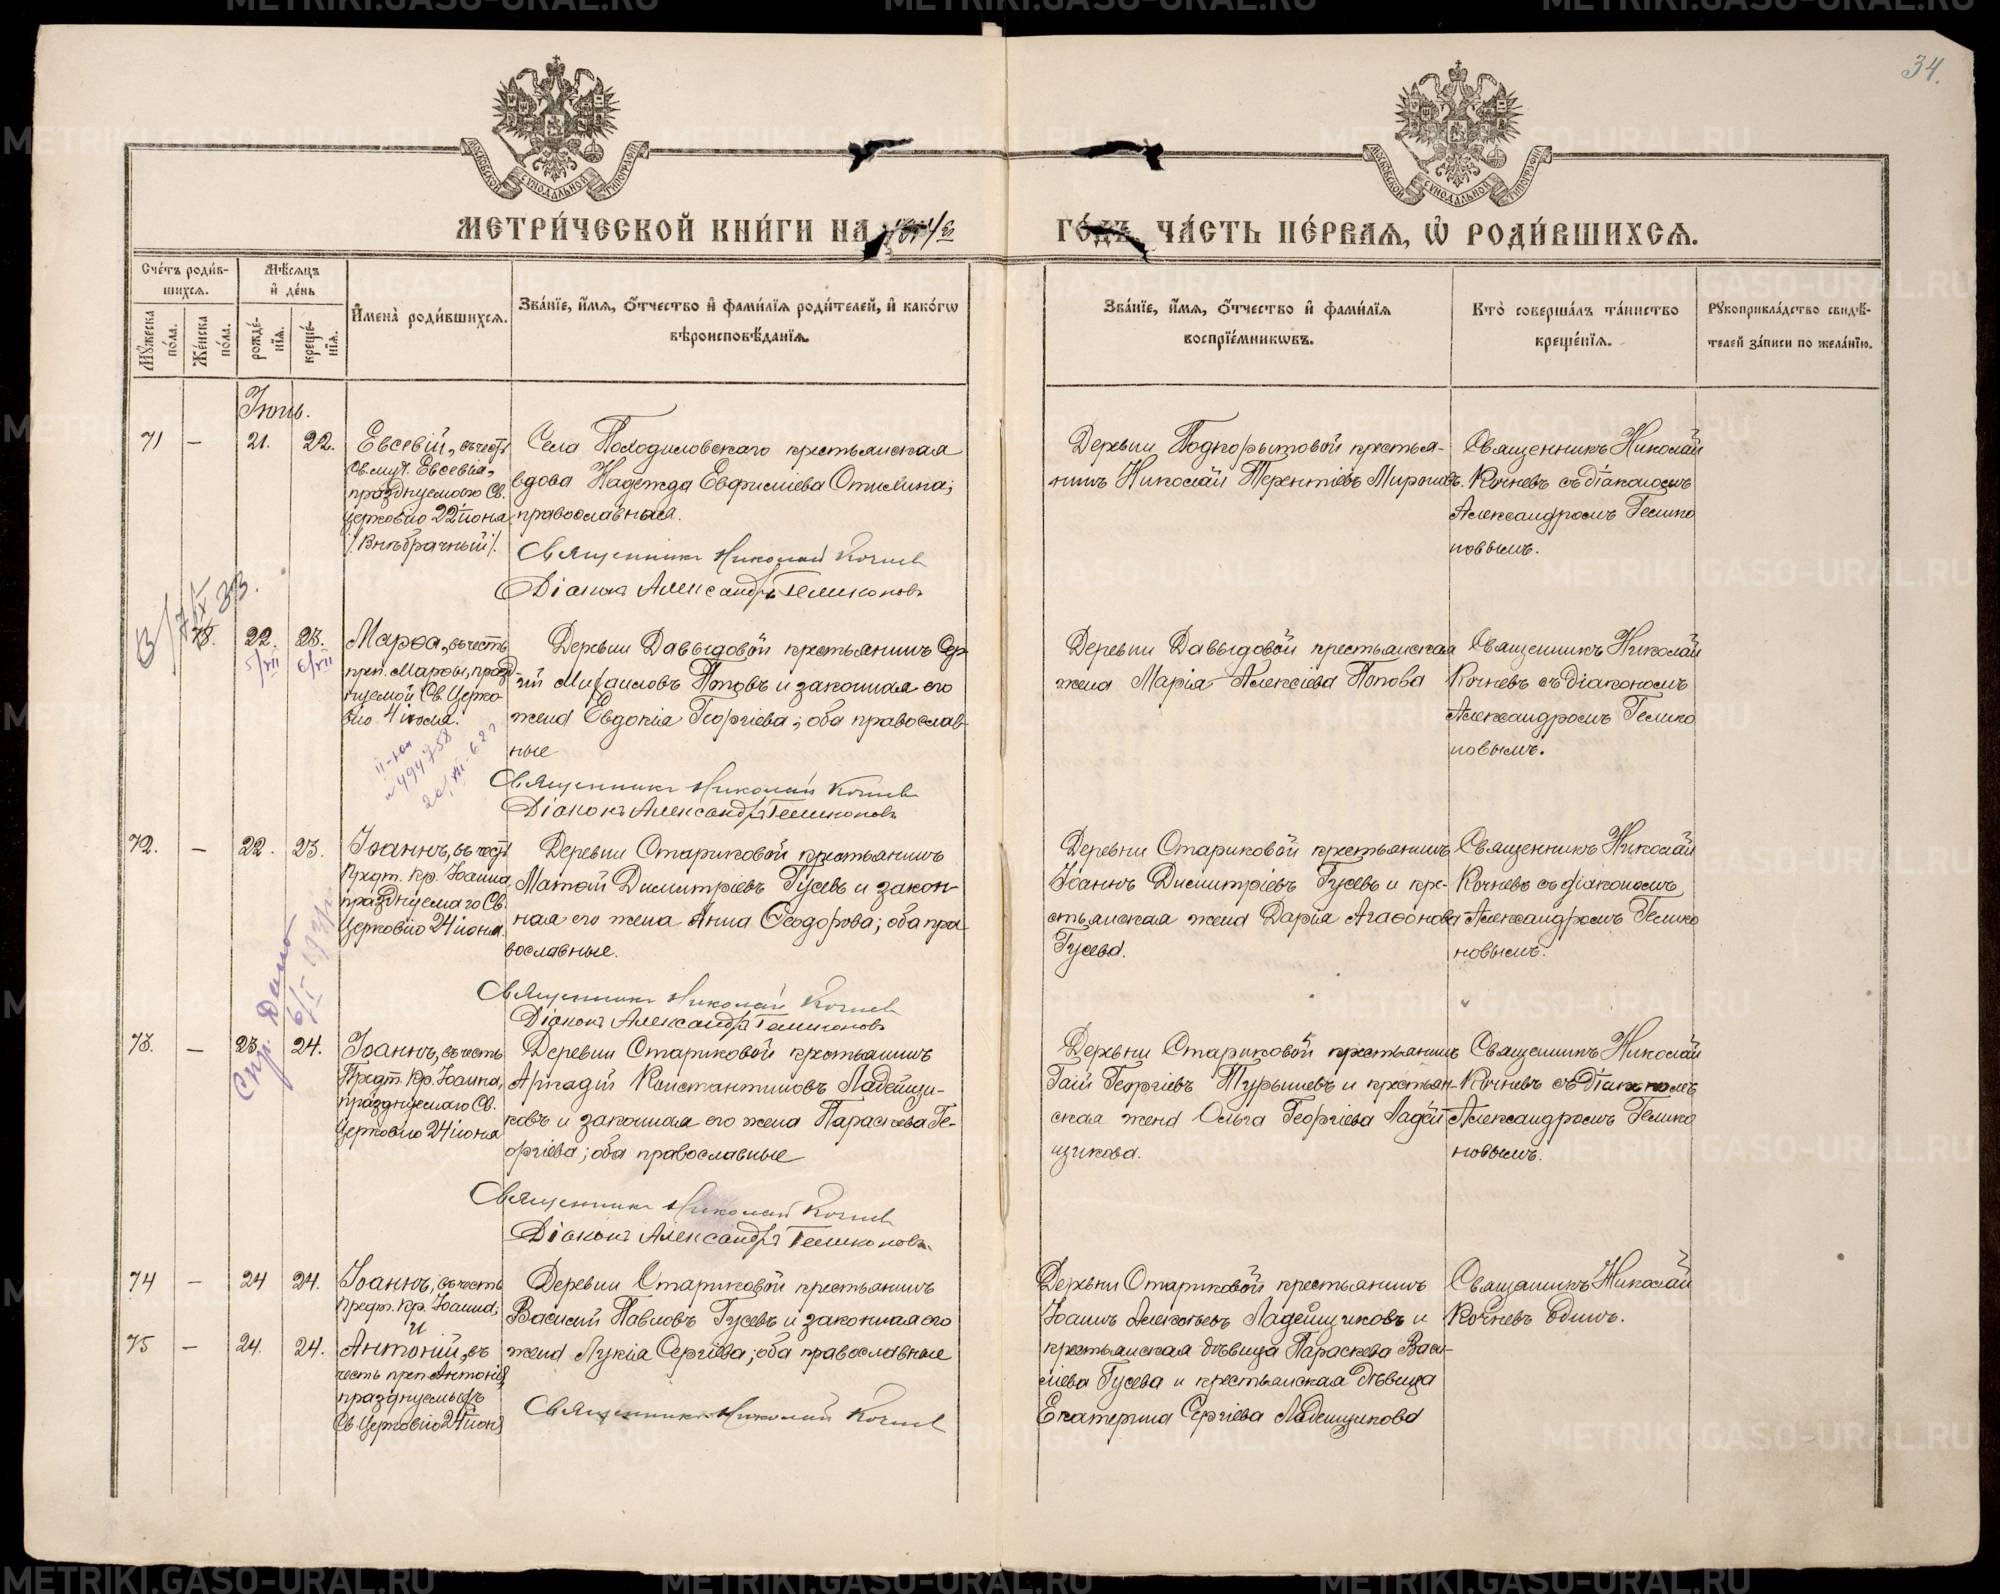 34.
МЕТРИ́ЧЕСКОЙ КНИ́ГИ НА
ГО́ДЪ, ЧА́СТЬ ПЕ́РВАЯ, Ѡ РОДИ́ВШИХСЯ.
Сче́тъ роди́в-
шихся.
Мѣсяцъ
и де́нь
Мꙋ́жеска
по́ла.
Же́нска
по́ла.
рожде́-
нїя.
креще́-
нїя.
Имена̀ роди́вшихся.
Зва́нїе, и́мя, о́тчество и фами́лїя роди́телей, и како́гѡ
вѣроисповѣ́данїя.
Зва́нїе, и́мя, о́тчество и фами́лїя
воспрїе́мникѡвъ.
Кто̀ соверша́лъ та́инство
креще́нїя.
Рꙋкоприкла́дство свидѣ́-
телей за́писи по жела́нїю.
Іюнь.
71
—
21.
22.
Евсевій, въ честь
Св. муч. Евсевія,
празднуемаго Св.
Церковію 22 іюня
/Внѣбрачный/.
Села Походиловскаго крестьянская
вдова Надежда Евфиміева Отисина;
православная.
Священникъ Николай Кочневъ
Діаконъ Александръ Геликоновъ
Деревни Подкорытовой крестья-
нинъ Николай Терентіевъ Мироновъ.
Священникъ Николай
Кочневъ съ діакономъ
Александромъ Гелико
новымъ.
22.
23.
5/VII
6/VII
Марѳа, въ честь
преп. Марѳы, празд-
нуемой Св. Церко-
вію 4 іюля.
Деревни Давыдовой крестьянинъ Сер-
гій Михаиловъ Поповъ и законная его
жена Евдокія Георгіева; оба православ-
ные
Священникъ Николай Кочневъ
Діаконъ Александръ Геликоновъ
Деревни Давыдовой крестьянская
жена Марія Алексіева Попова
Священникъ Николай
Кочневъ съ діакономъ
Александромъ Гелико
новымъ.
72.
—
22.
23.
Іоаннъ, въ честь
Предт. Кр. Іоанна,
празднуемаго Св.
Церковію 24 іюня.
Деревни Стариковой крестьянинъ
Матѳій Димитріевъ Гусевъ и закон-
ная его жена Анна Ѳеодорова; оба пра-
вославные.
Священникъ Николай Кочневъ
Діаконъ Александръ Геликоновъ
Деревни Стариковой крестьянинъ
Іоаннъ Димитріевъ Гусевъ и кре-
стьянская жена Дарія Агаѳонова
Гусева.
Священникъ Николай
Кочневъ съ діакономъ
Александромъ Гелико
новымъ.
73.
—
23.
24.
Іоаннъ, въ честь
Предт. Кр. Іоанна,
празднуемаго Св.
Церковію 24 іюня
Деревни Стариковой крестьянинъ
Аркадій Константиновъ Ладейщи-
ковъ и законная его жена Параскева Ге-
оргіева; оба православные
Священникъ Николай Кочневъ
Діаконъ Александръ Геликоновъ.
Деревни Стариковой крестьянинъ
Гаій Георгіевъ Турышевъ и крестьян-
ская жена Ольга Георгіева Ладей
щикова.
Священникъ Николай
Кочневъ съ діакономъ
Александромъ Гелико
новымъ.
74
—
24
24.
Іоаннъ, въ честь
Предт. Кр. Іоанна;
и
75
—
24.
24.
Антоній, въ
честь преп Антонія,
празднуемыхъ
Св Церковію 24 іюня
Деревни Стариковой крестьянинъ
Василій Павловъ Гусевъ и законная его
жена Лукія Сергіева; оба православные
Священникъ Николай Кочневъ
Деревни Стариковой крестьянинъ
Іоаннъ Алексіевъ Ладейщиковъ и
крестьянская дѣвица Параскева Васи-
ліева Гусева и крестьянская дѣвица
Екатерина Сергіева Ладейщикова
Священникъ Николай
Кочневъ одинъ.
METRIKI.GASO-URAL.RU